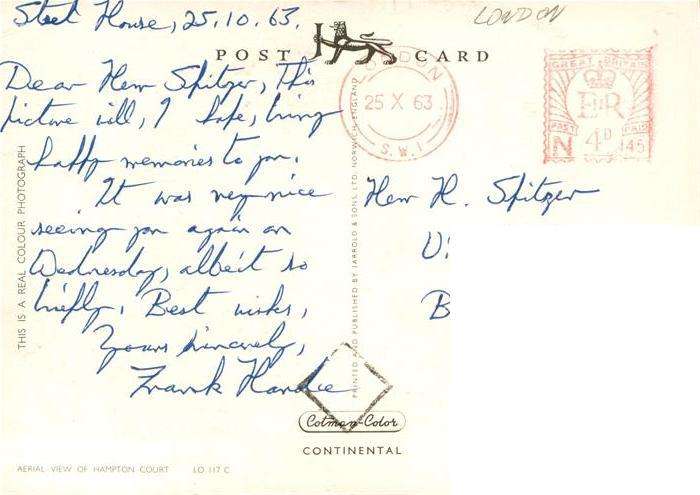 Steel House, 25.10.63.
LONDON
POST CARD
Dear Herr Spitzer, This
picture will, I hope, bring
happy memories to you.
It was very nice
seeing you again on
Wednesday, albeit so
briefly. Best wishes,
Yours sincerely,
Frank Hardie
LONDON
25 X 63
S.W.1
GREAT BRITAIN
E II R
POST PAID
4D
N 145
Herr H. Spitzer
B
THIS IS A REAL COLOUR PHOTOGRAPH
PRINTED AND PUBLISHED BY JARROLD & SONS, LTD. NORWICH, ENGLAND
Cotman-Color
CONTINENTAL
AERIAL VIEW OF HAMPTON COURT LO 117 C